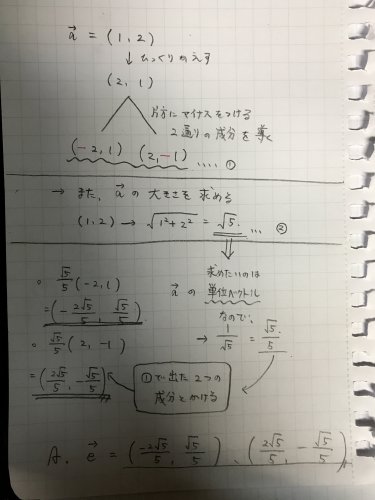 a⃗ = (1, 2)
↓ ひっくりかえす
(2, 1)
片方にマイナスをつける
2通りの成分を導く
(-2, 1) (2, -1) .... ①
→ また、a⃗ の 大きさを 求める
(1, 2) → √1²+2² = √5. ... ②
求めたいのは
a⃗ の 単位ベクトル
なので、
→ 1/√5 = √5/5
○ √5/5 (-2, 1)
= (-2√5/5, √5/5)
○ √5/5 (2, -1)
= (2√5/5, -√5/5)
①で出た 2つの
成分とかける
A. e⃗ = (-2√5/5, √5/5)、(2√5/5, -√5/5)